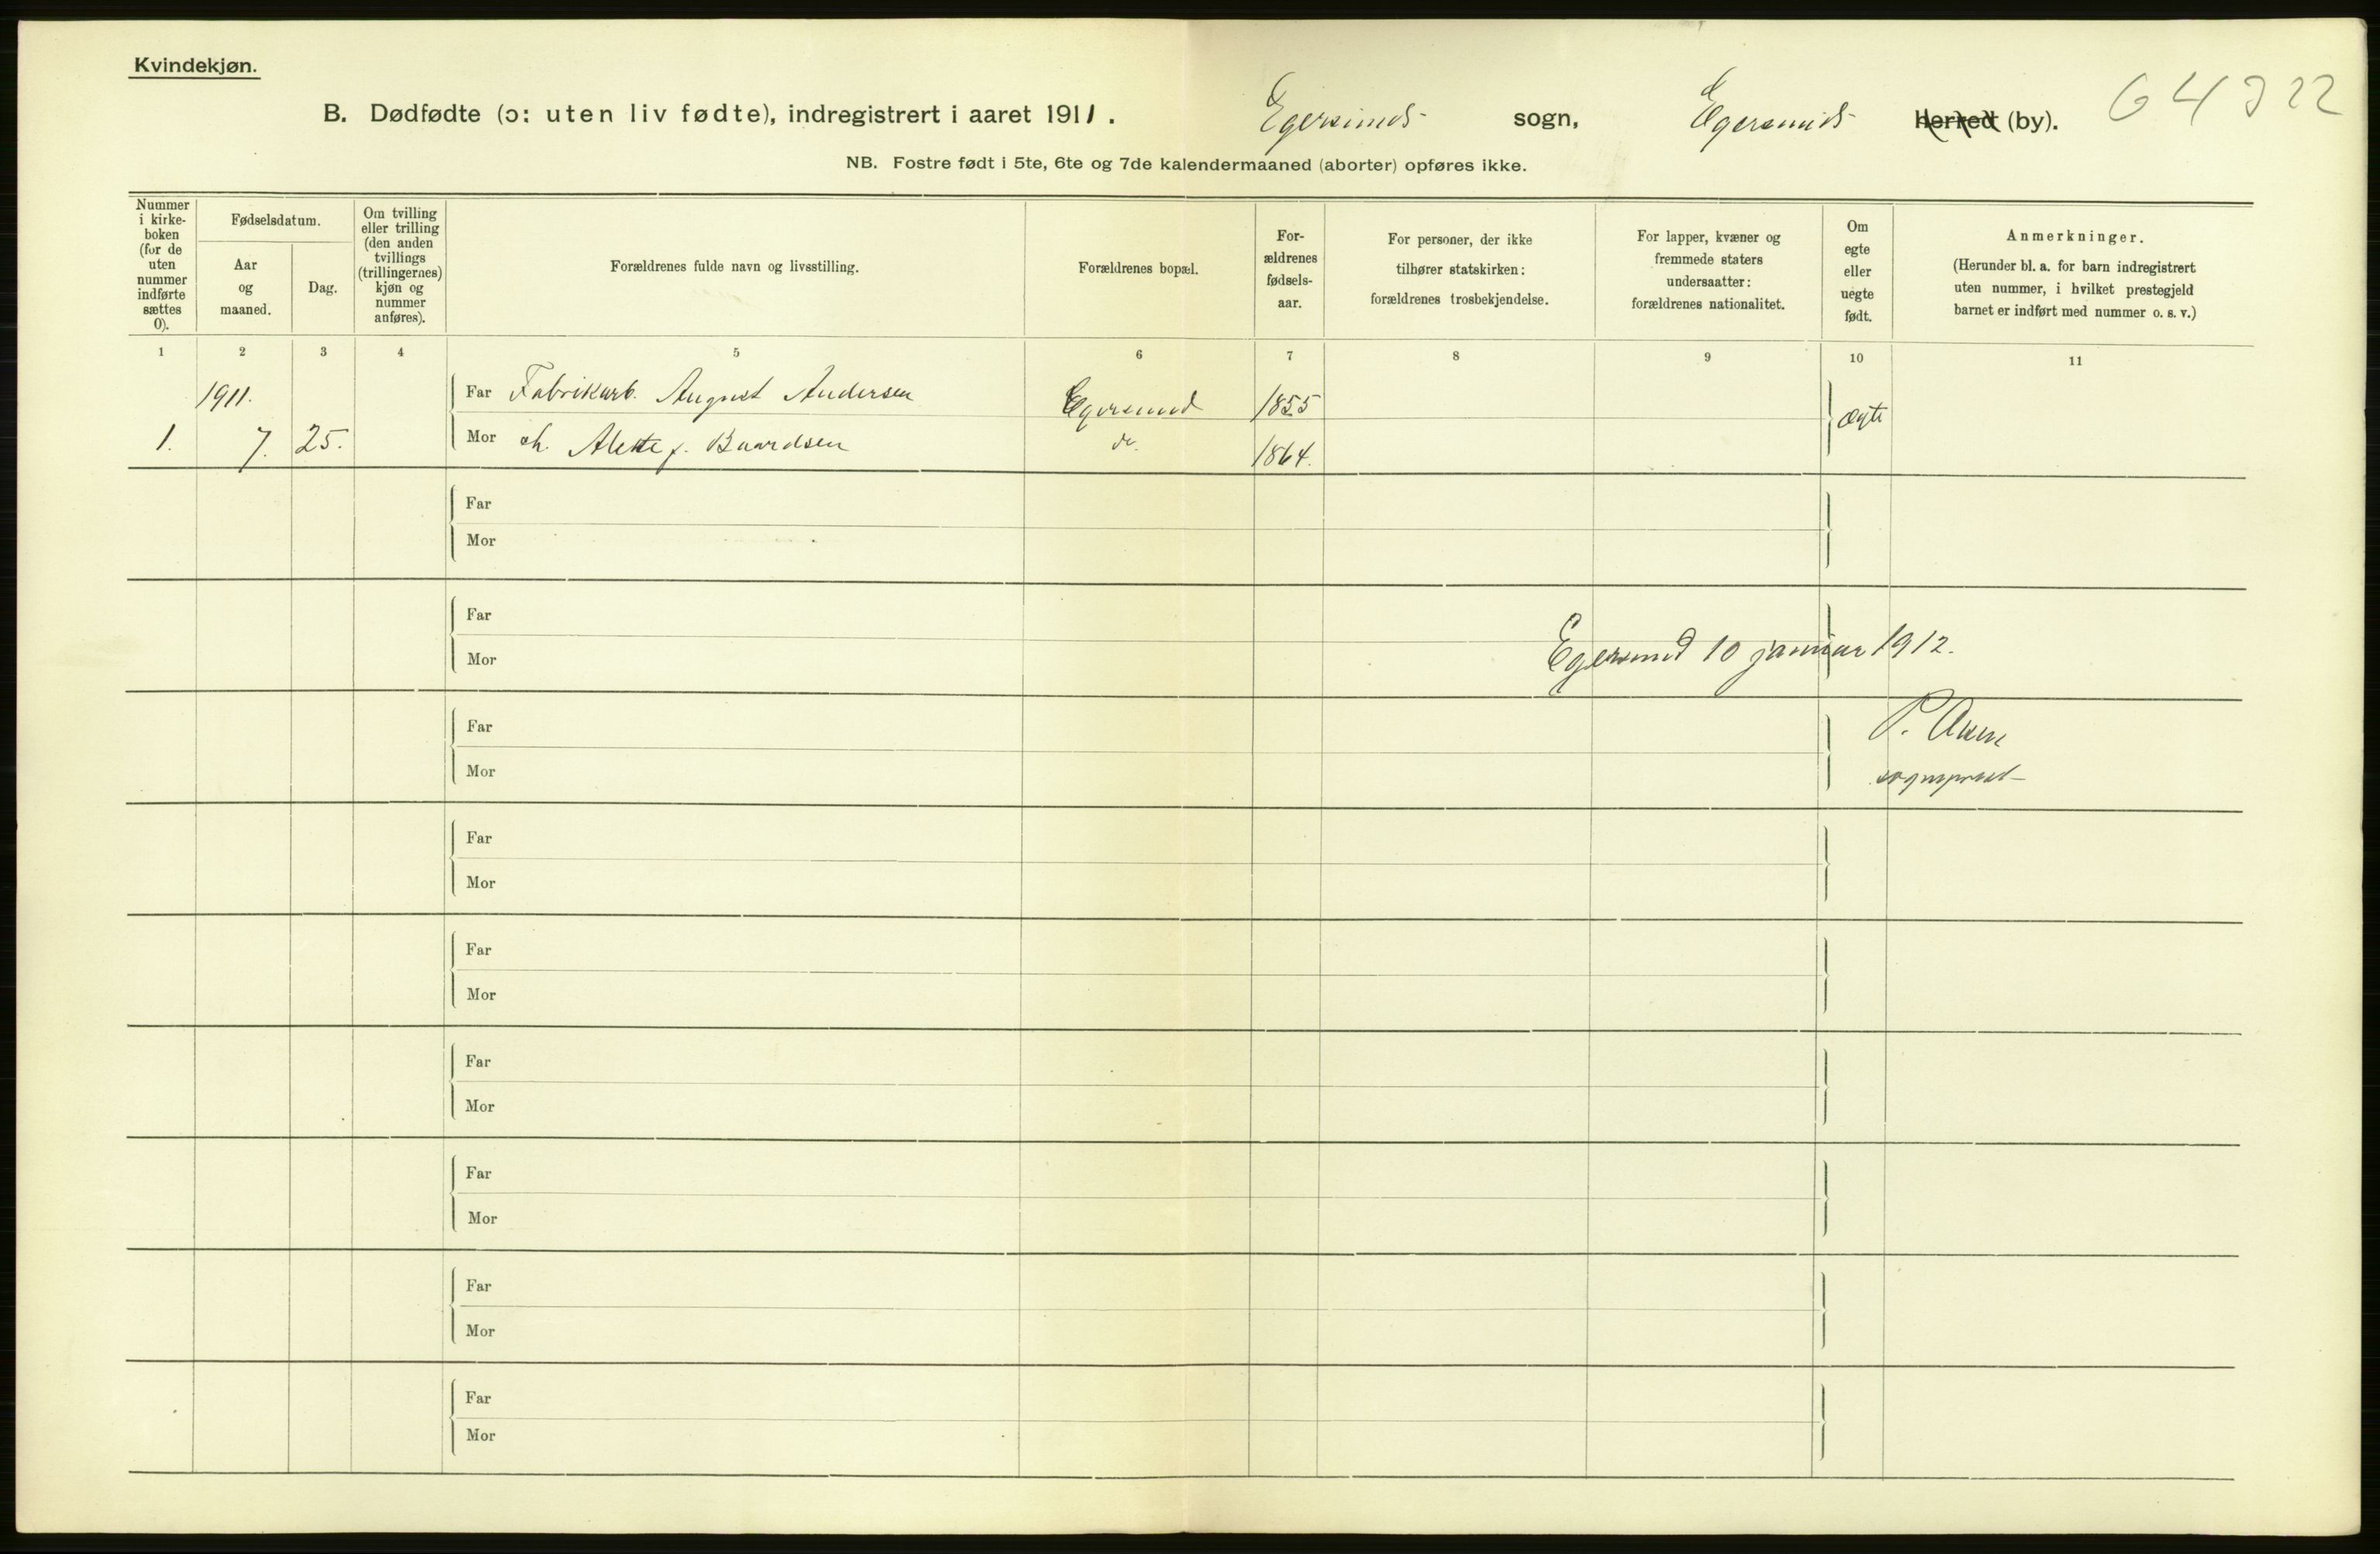 Kvindekjøn.
B. Dødfødte (ɔ: uten liv fødte), indregistrert i aaret 1911. Egersunds sogn, Egersunds Herred (by).
NB. Fostre født i 5te, 6te og 7de kalendermaaned (aborter) opføres ikke.
Nummer
i kirke-
boken
(for de
uten
nummer
indførte
sættes
0).
Fødselsdatum.
Aar
og
maaned.
Dag.
Om tvilling
eller trilling
(den anden
tvillings
(trillingernes)
kjøn og
nummer
anføres).
Forældrenes fulde navn og livsstilling.
Forældrenes bopæl.
For-
ældrenes
fødsels-
aar.
For personer, der ikke
tilhører statskirken:
forældrenes trosbekjendelse.
For lapper, kvæner og
fremmede staters
undersaatter:
forældrenes nationalitet.
Om
egte
eller
uegte
født.
Anmerkninger.
(Herunder bl. a. for barn indregistrert
uten nummer, i hvilket prestegjeld
barnet er indført med nummer o. s. v.)
1 2 3 4 5 6 7 8 9 10 11
1911. Far Fabrikarb. August Andersen Egersund 1855 ægte
1. 7. 25. Mor h. Alette f. Baardsen do. 1864.
Far
Mor
Far
Mor
Egersund 10 januar 1912.
Far
P.
Mor
sogneprest
Far
Mor
Far
Mor
Far
Mor
Far
Mor
Far
Mor
Far
Mor